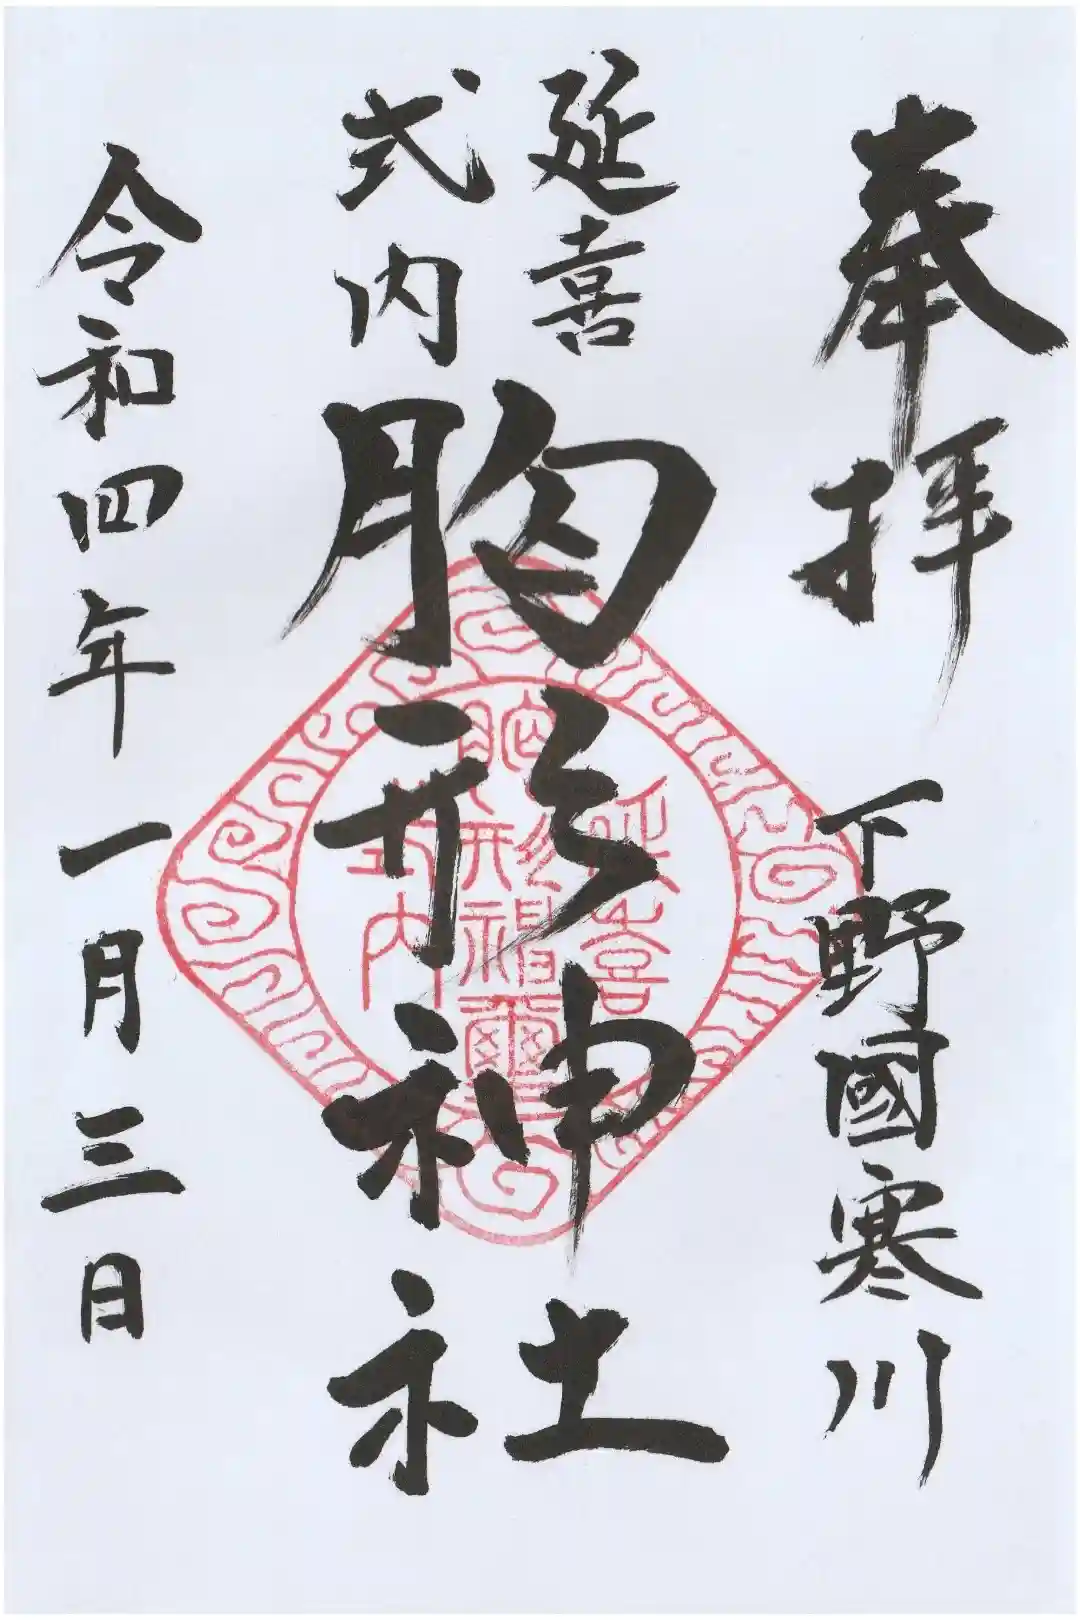 奉拝
下野國寒川
延喜
式内
胸形神社
令和四年一月三日
延喜
胸形神璽
式内